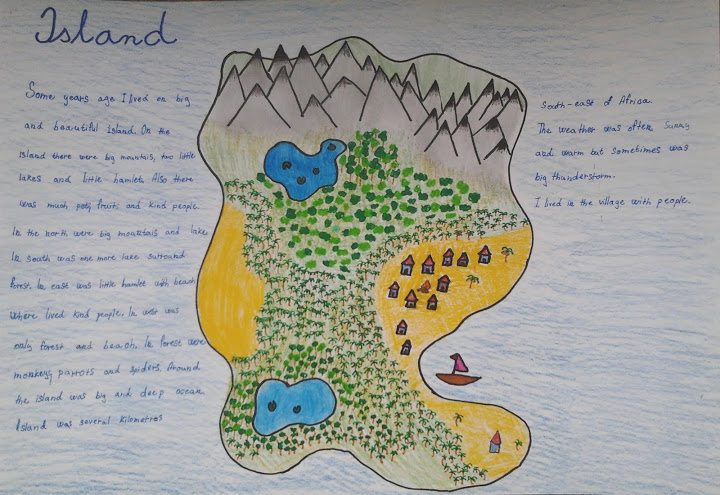 Island
Some years ago I lived on big
and beautiful Island. On the
island there were big mountais, two little
lakes and little hamlet. Also there
was much fruits and kind people.
In the north were big mountais and lake
In south was one more lake surround
forest. In east was little hamlet with beach
where lived kind people. In west was
only forest and beach. In forest were
monkey, parrots and spiders. Around
the island was big and deep ocean
Island was several kilometres
South-east of Africa.
The weather was often sunny
and warm but sometimes was
big thunderstorm.
I lived in the village with people.